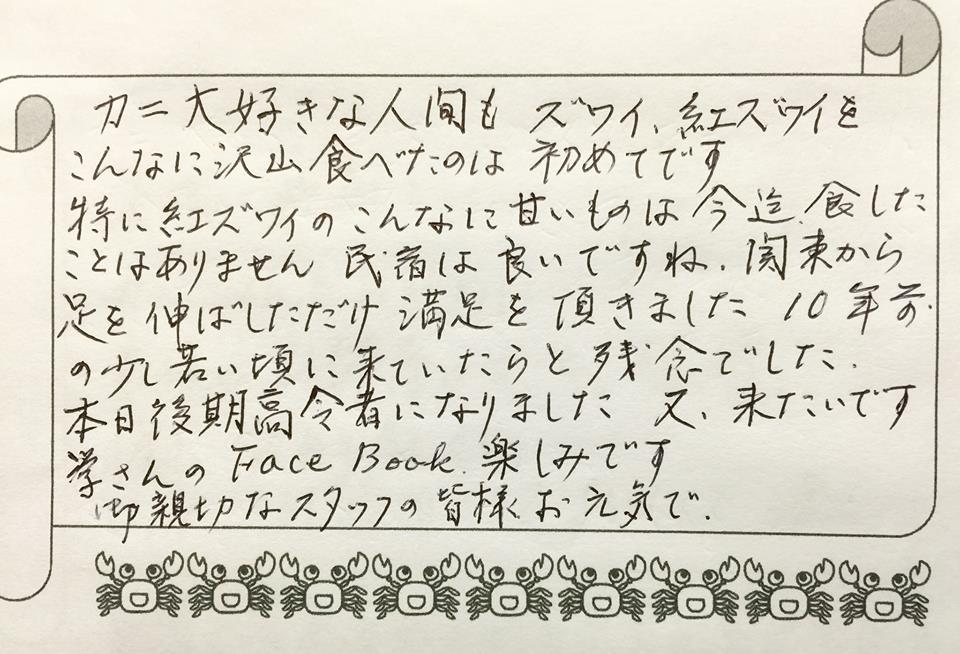 カニ大好きな人間も ズワイ、紅ズワイを
こんなに沢山食べたのは 初めてです
特に紅ズワイのこんなに甘いものは今迄、食した
ことはありません 民宿は良いですね、関東から
足を伸ばしただけ 満足を頂きました 10年前
の少し若い頃に来ていたらと残念でした、
本日後期高令者になりました 又、来たいです
学さんの Face Book、楽しみです
御親切なスタッフの皆様お元気で、